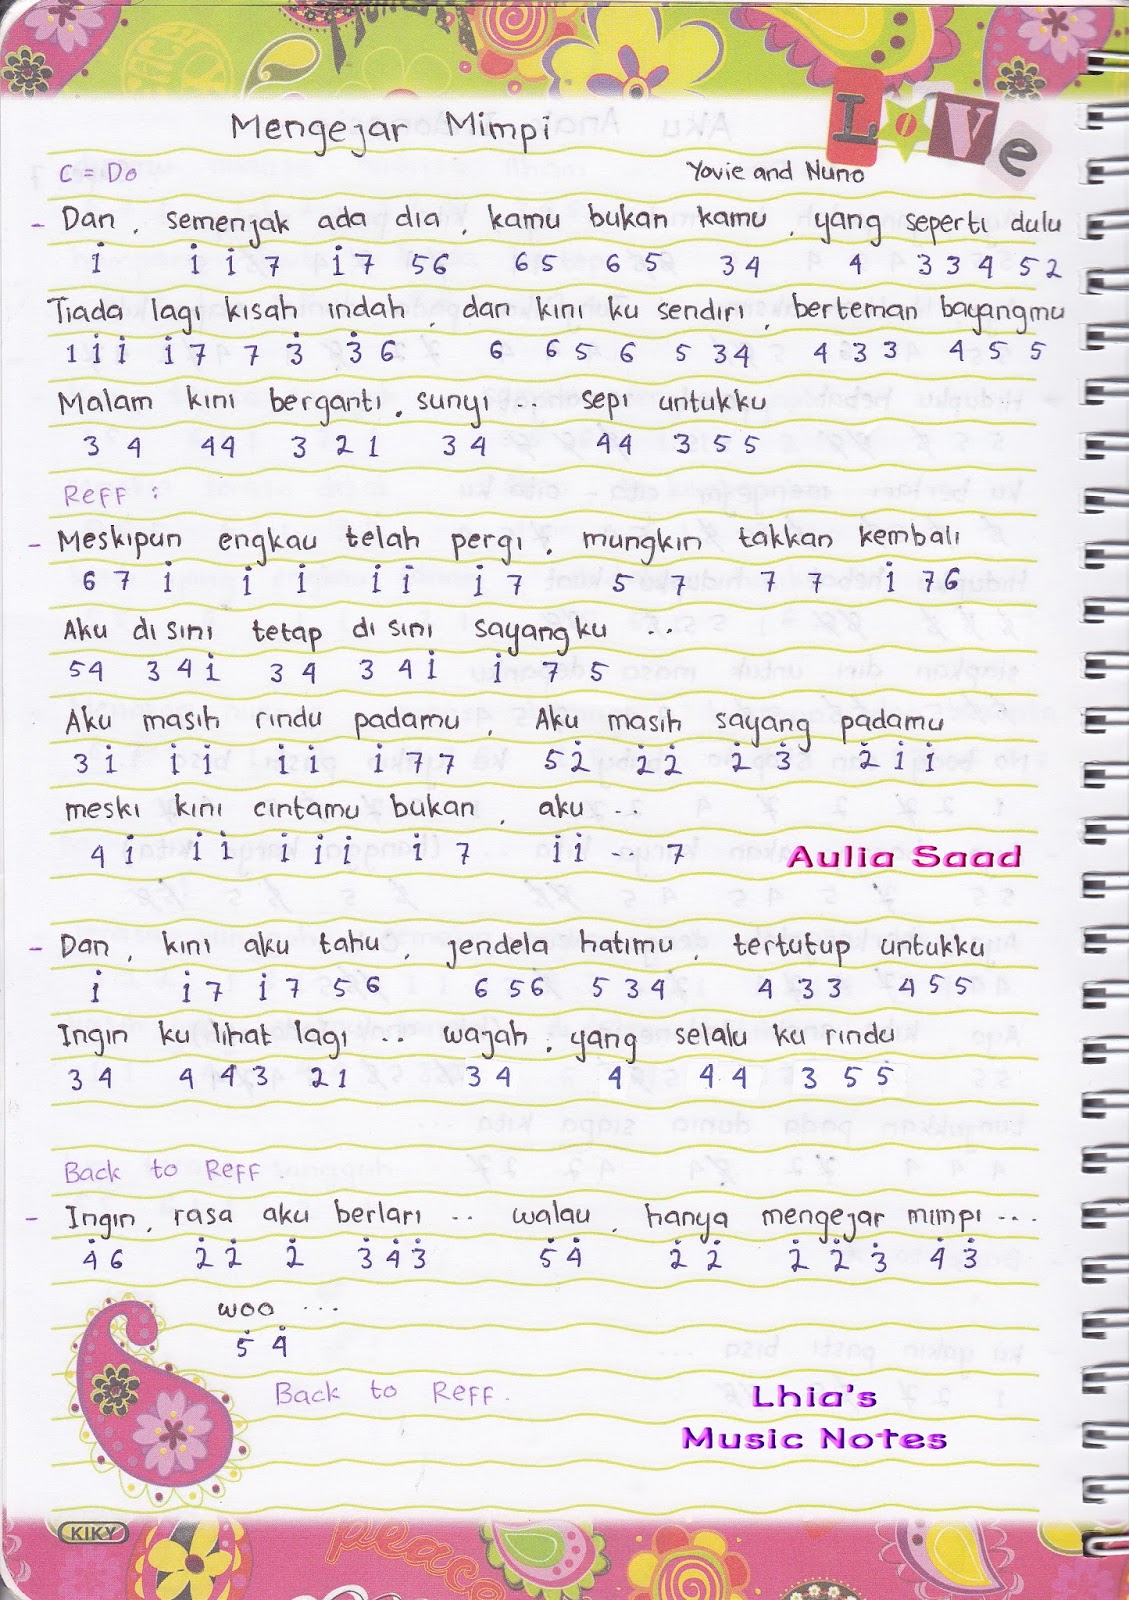 LOVe
Mengejar Mimpi
C = Do
Yovie and Nuno
- Dan , semenjak ada dia , kamu bukan kamu , yang seperti dulu
i̇ i̇ i̇ 7 i̇ 7 5 6 6 5 6 5 3 4 4 3 3 4 5 2
Tiada lagi kisah indah , dan kini ku sendiri , berteman bayangmu
1 i̇ i̇ i̇ 7 7 3̇ 3̇ 6 6 6 5 6 5 3 4 4 3 3 4 5 5
Malam kini berganti , sunyi ... sepi untukku
3 4 4 4 3 2 1 3 4 4 4 3 5 5
Reff :
- Meskipun engkau telah pergi , mungkin takkan kembali
6 7 i̇ i̇ i̇ i̇ i̇ i̇ 7 5 7 7 7 i̇ 7 6
Aku disini tetap disini sayangku ..
5 4 3 4 i̇ 3 4 3 4 i̇ i̇ 7 5
Aku masih rindu padamu , Aku masih sayang padamu
3 i̇ i̇ i̇ i̇ i̇ i̇ 7 7 5 2̇ 2̇ 2̇ 2̇ 3̇ 2̇ i̇ i̇
meski kini cintamu bukan , aku ..
4 i̇ i̇ i̇ i̇ i̇ i̇ i̇ 7 i̇ i̇ - 7
Aulia Saad
- Dan , kini aku tahu , jendela hatimu , tertutup untukku
i̇ i̇ 7 i̇ 7 5 6 6 5 6 5 3 4 4 3 3 4 5 5
Ingin ku lihat lagi .. wajah , yang selalu ku rindu
3 4 4 4 3 2 1 3 4 4 4 4 3 5 5
Back to Reff .
- Ingin , rasa aku berlari .. walau , hanya mengejar mimpi ...
4̇ 6 2̇ 2̇ 2̇ 3̇ 4̇ 3̇ 5̇ 4̇ 2̇ 2̇ 2̇ 2̇ 3̇ 4̇ 3̇
woo ...
5̇ 4̇
Back to Reff .
Lhia's
Music Notes
KIKY
peace